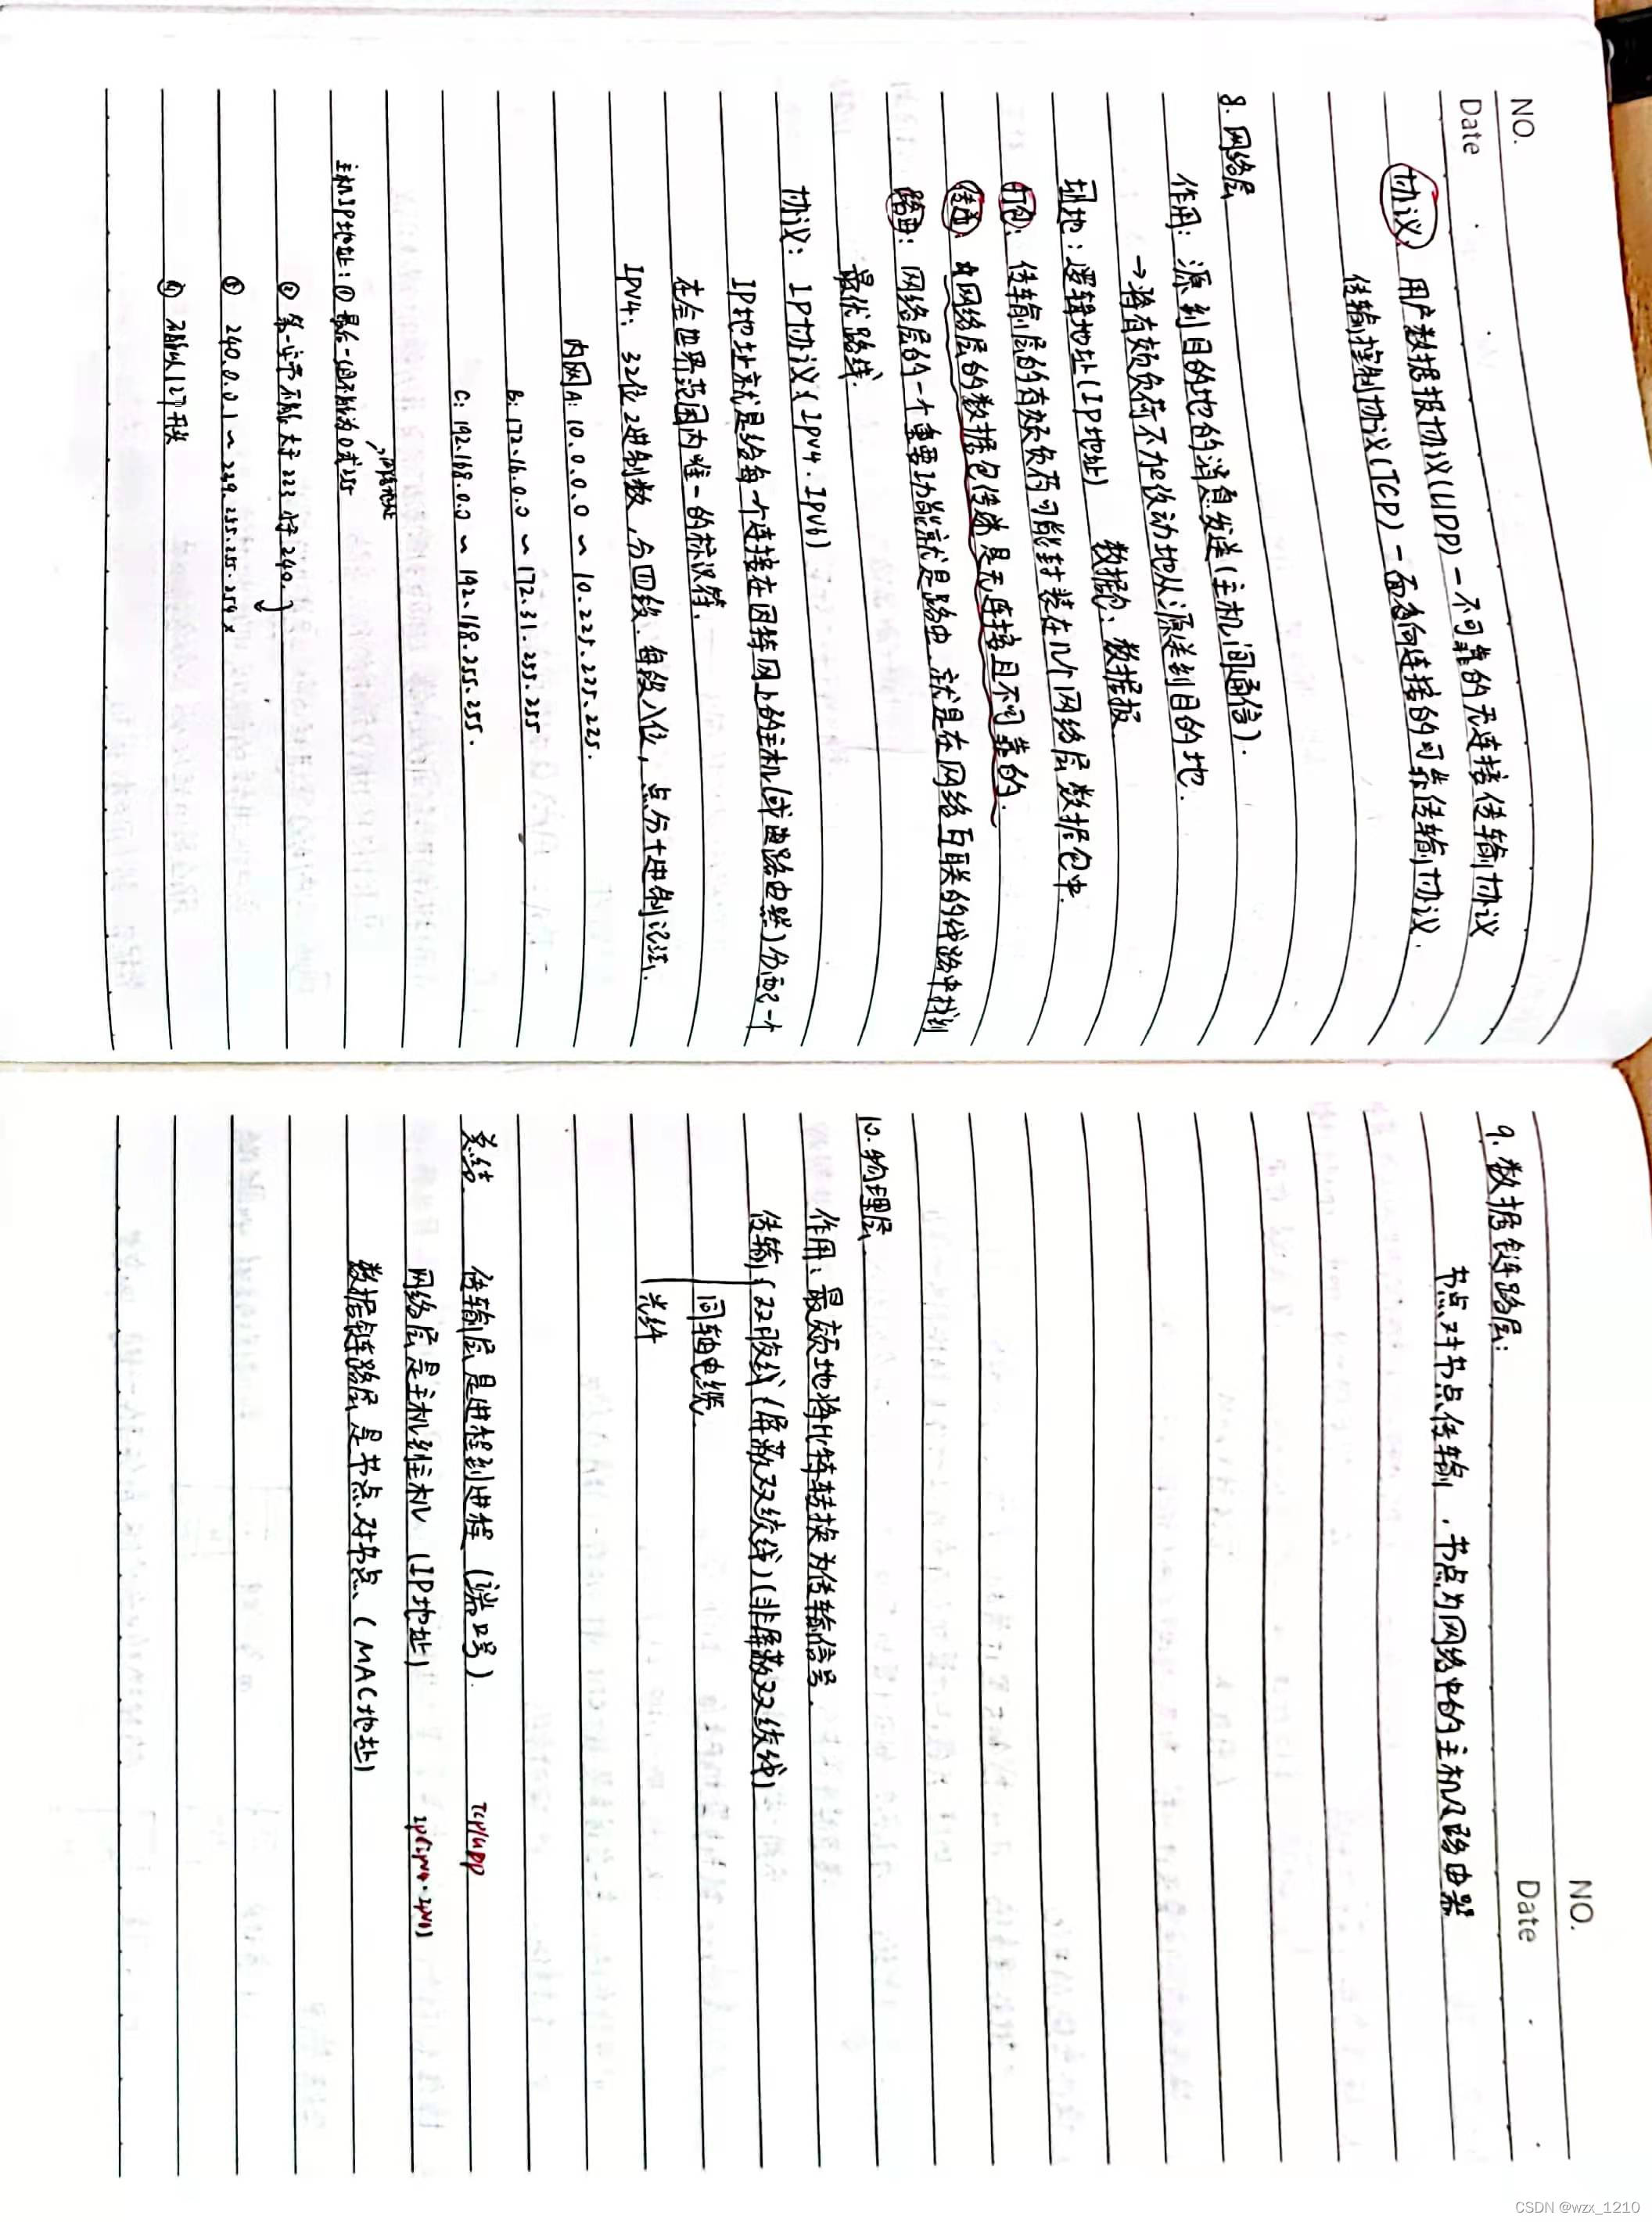 NO.
Date
协议: 用户数据报协议(UDP) — 不可靠的无连接传输协议
传输控制协议(TCP) — 面向连接的可靠传输协议.
8. 网络层
作用: 源到目的地的消息发送(主机间通信).
→将有效负荷不加改动地从源送到目的地.
地: 逻辑地址(IP地址) 数据包、数据报
打包: 传输层的有效负荷可能封装在几个网络层数据包中.
传递: 网络层的数据包传递是无连接且不可靠的.
路由: 网络层的一个重要功能就是路由. 就是在网络互联的线路中找到
最优路线.
协议: IP协议(IPV4. IPV6)
IP地址就是给每一个连接在因特网上的主机(或路由器)分配一个
在全世界范围内唯一的标识符.
IPV4: 32位2进制数, 分四段. 每段八位, 点分十进制记法.
内网A: 10.0.0.0 ~ 10.225.225.225.
B: 172.16.0.0 ~ 172.31.255.255
C: 192.168.0.0 ~ 192.168.255.255.
网络地址
主机IP地址: ① 最后一个不能为0或255
② 第一字节不能大于223 小于240.
③ 240.0.0.1 ~ 239.255.255.254 ×
④ 不能以127开头
NO.
Date
9. 数据链路层:
节点对节点传输, 节点为网络中的主机及路由器
10. 物理层
作用: 最有效地将比特转换为传输信号.
传输 双绞线(屏蔽双绞线)(非屏蔽双绞线)
同轴电缆
光纤
总结 传输层是进程到进程 (端口号). TCP/UDP
网络层是主机到主机 (IP地址) IP(IPV4. IPV6)
数据链路层是节点对节点 (MAC地址)
CSDN @wzx_1210